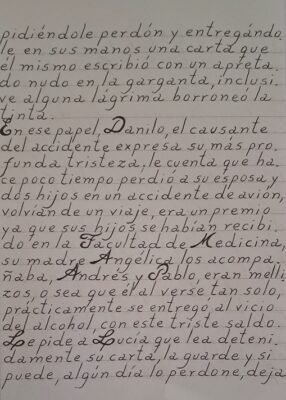 pidiéndole perdón y entregándo
le en sus manos una carta que
él mismo escribió con un apreta.
do nudo en la garganta, inclusi.
ve alguna lágrima borroneó la
tinta.
En ese papel, Danilo, el causante
del accidente expresa su más pro.
funda tristeza, le cuenta que ha.
ce poco tiempo perdió a su esposa y
dos hijos en un accidente de avión,
volvían de un viaje, era un premio
ya que sus hijos se habían recibi.
do en la Facultad de Medicina,
su madre Angélica los acompa.
ñaba, Andrés y Pablo, eran melli.
zos, o sea que él al verse tan solo,
prácticamente se entregó al vicio
del alcohol, con este triste saldo.
Le pide a Lucía que lea deteni.
damente su carta, la guarde y si
puede, algún día lo perdone, deja